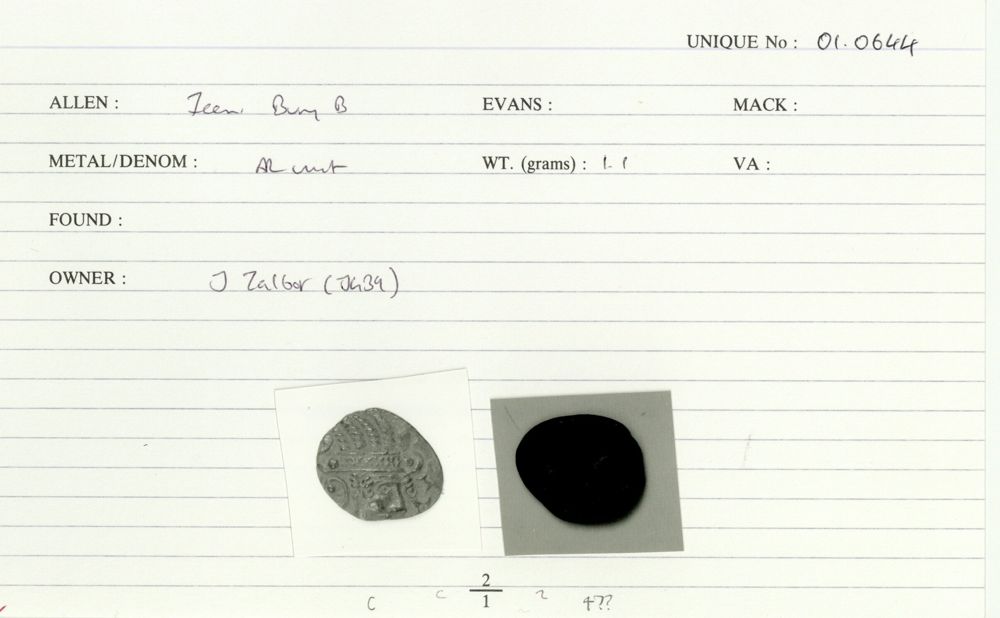 UNIQUE No : 01.0644
ALLEN : Icen. Bury B EVANS : MACK :
METAL/DENOM : AR unit WT. (grams) : 1.1 VA :
FOUND :
OWNER : J Talbot (JG39)
2
1
C C 2 4??